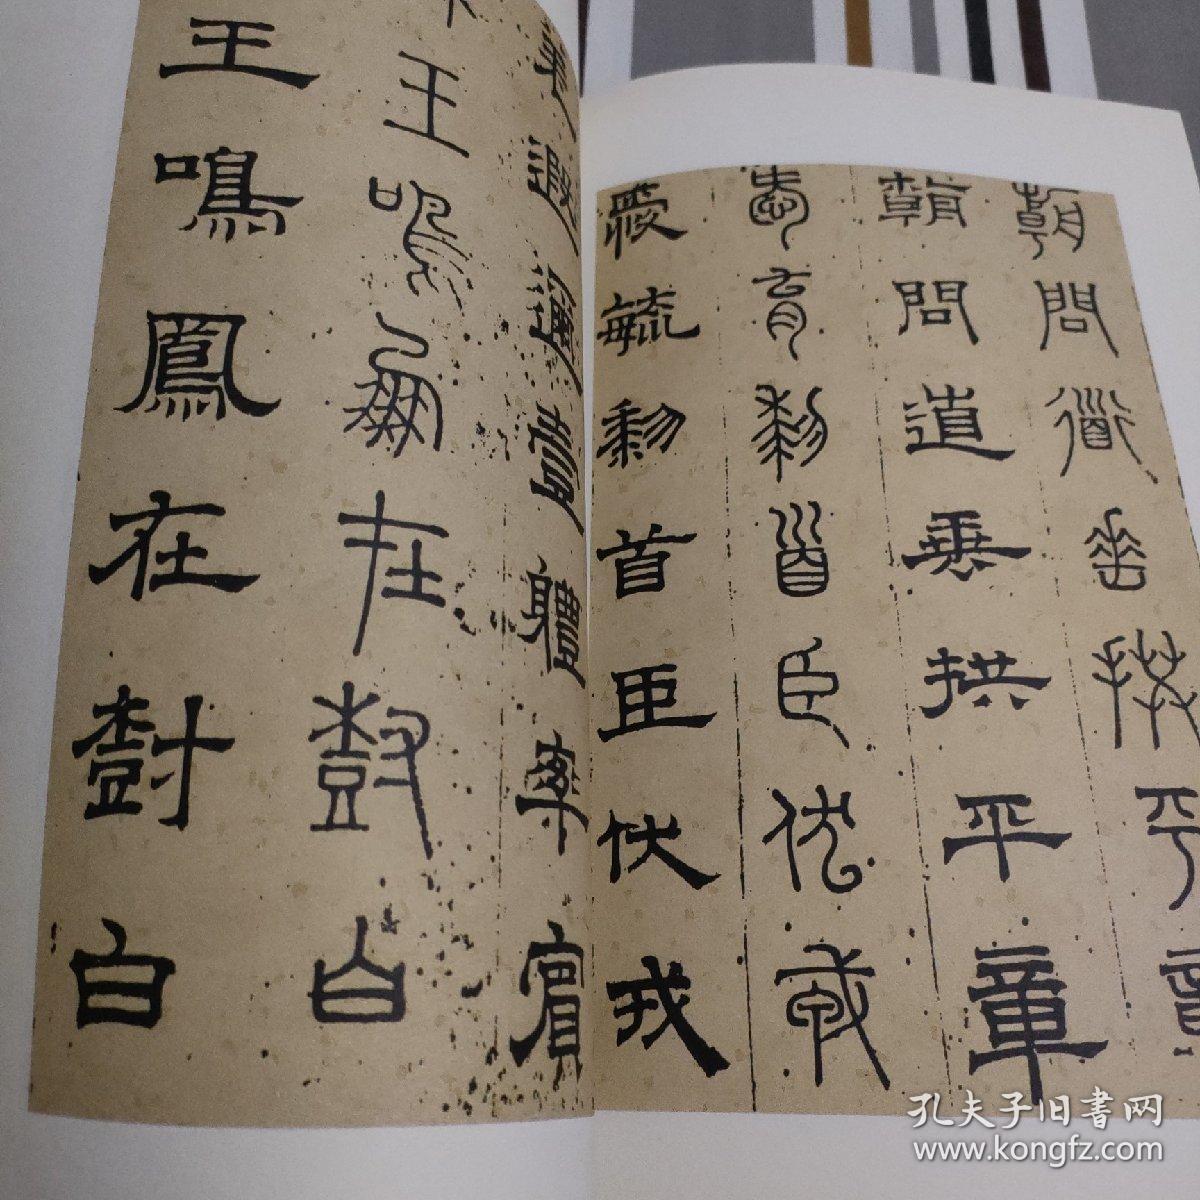 朝問道垂拱平章
朝問道垂拱平章
愛育黎首臣伏戎
愛育黎首臣伏戎
遐邇壹體率賓
王鳴鳳在樹白
王鳴鳳在樹白
孔夫子旧書网
www.kongfz.com